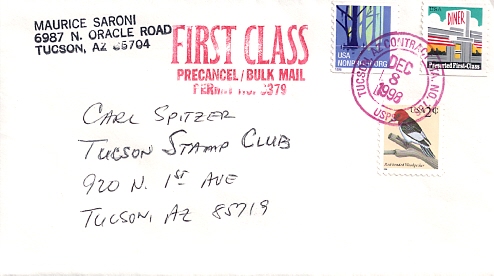 MAURICE SARONI
6987 N. ORACLE ROAD
TUCSON, AZ 85704
FIRST CLASS
PRECANCEL/BULK MAIL
PERMIT NO. 3379
USA
NONPROFIT ORG
DINER
USA
Presorted First-Class
TUCSON, AZ CONTRACT STA. NO.
DEC
8
1998
USPS
USA 2¢
Red-headed Woodpecker
CARL SPITZER
TUCSON STAMP CLUB
920 N. 1ST AVE
TUCSON, AZ 85719